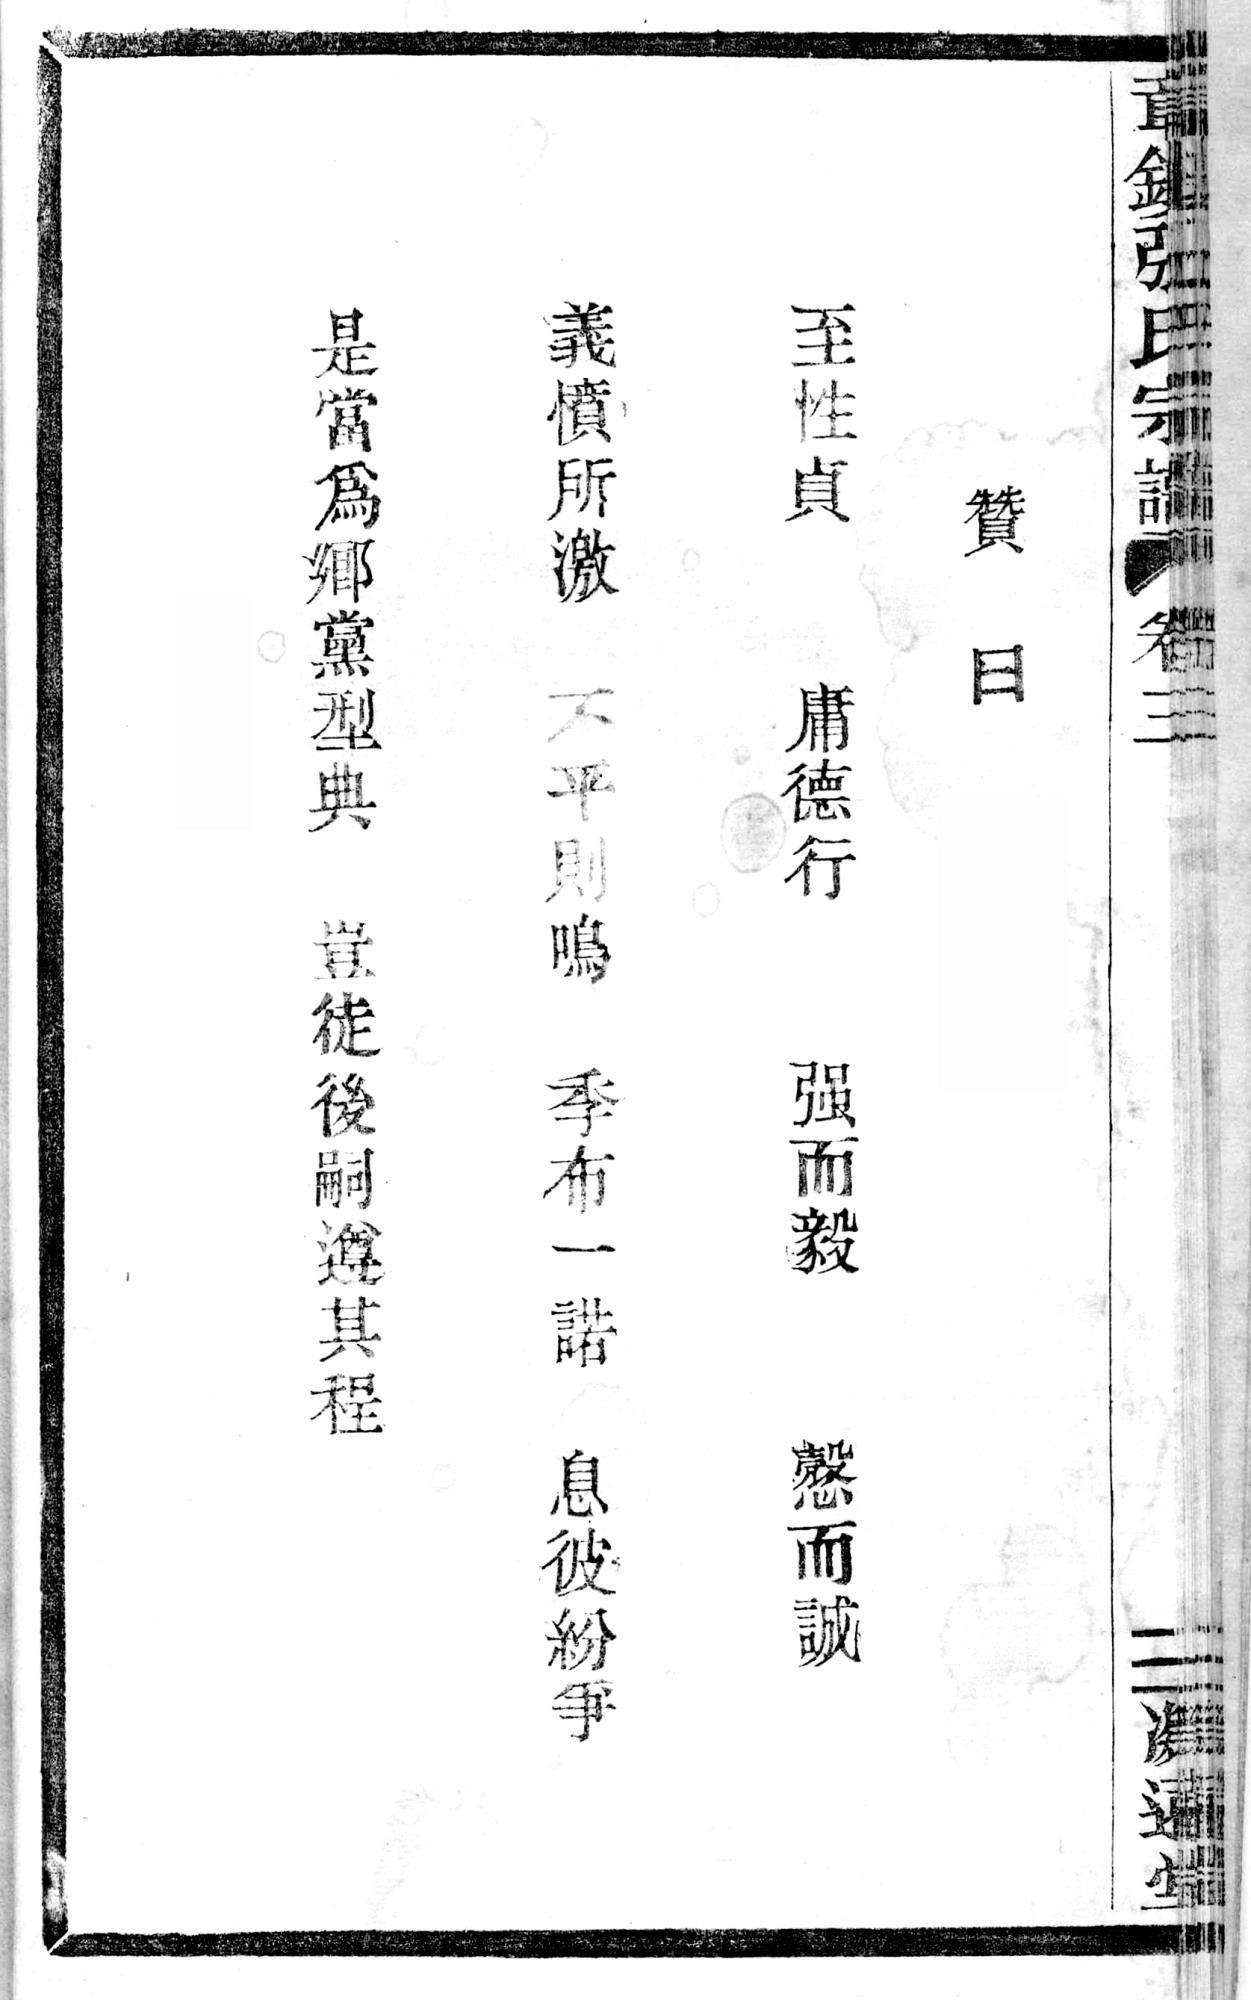 張氏宗譜 卷三 二
贊曰
至性貞 庸德行 强而毅 慤而誠
義憤所激 不平則鳴 季布一諾 息彼紛爭
是當爲鄉黨型典 豈徒後嗣遵其程